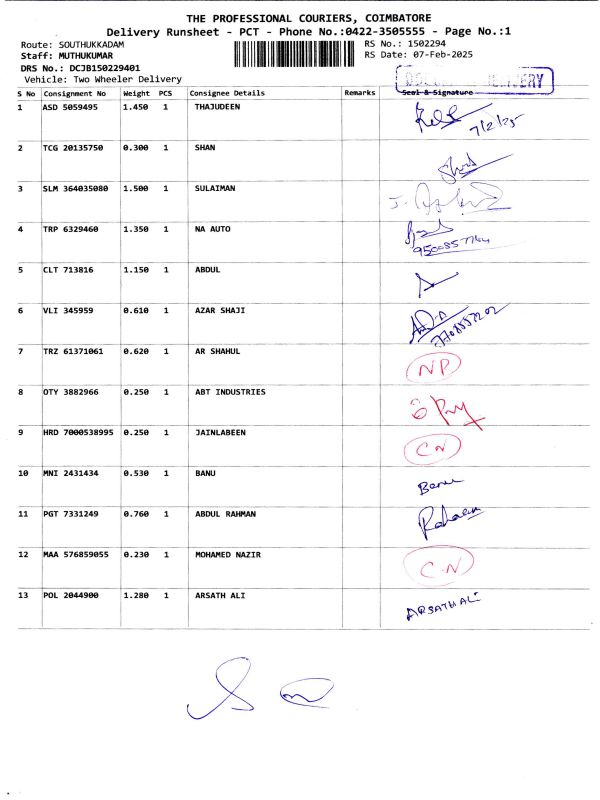 THE PROFESSIONAL COURIERS, COIMBATORE
Delivery Runsheet - PCT - Phone No.:0422-3505555 - Page No.:1
Route: SOUTHUKKADAM RS No.: 1502294
Staff: MUTHUKUMAR RS Date: 07-Feb-2025
DRS No.: DCJB150229401
Vehicle: Two Wheeler Delivery
S No Consignment No Weight PCS Consignee Details Remarks Seal & Signature
1 ASD 5059495 1.450 1 THAJUDEEN 7/2/25
2 TCG 20135750 0.300 1 SHAN
3 SLM 364035080 1.500 1 SULAIMAN
4 TRP 6329460 1.350 1 NA AUTO
5 CLT 713816 1.150 1 ABDUL
6 VLI 345959 0.610 1 AZAR SHAJI
7 TRZ 61371061 0.620 1 AR SHAHUL NP
8 OTY 3882966 0.250 1 ABT INDUSTRIES
9 HRD 7000538995 0.250 1 JAINLABEEN CN
10 MNI 2431434 0.530 1 BANU Banu
11 PGT 7331249 0.760 1 ABDUL RAHMAN
12 MAA 576859055 0.230 1 MOHAMED NAZIR C.N
13 POL 2044900 1.280 1 ARSATH ALI ARSATH ALI